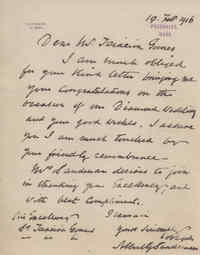 19. Feb 1916
Dear Mr Teixeira Gomes
I am much obliged
for your kind letter bringing me
your congratulations on the
occasion of our Diamond Wedding
and your good wishes. I assure
you I am much touched by
your friendly remembrance.
Mrs Sandeman desires to join
in thanking your Excellency, and
with best compliments.
I remain
His Excellency
Sr Teixeira Gomes
Albert G Sandeman